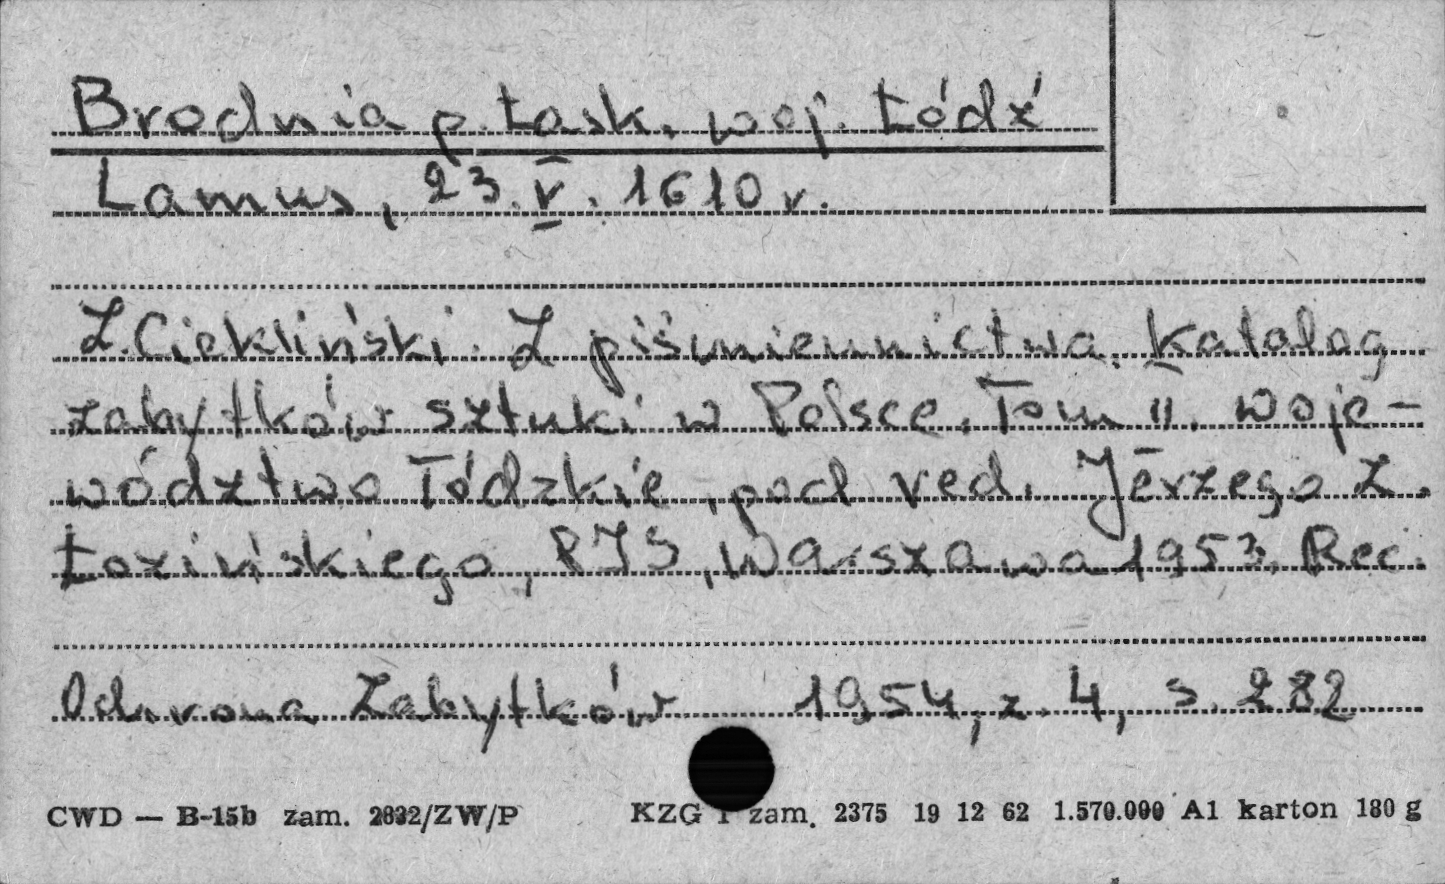 Brodnia p. Łask, woj. Łódź
Lamus, 23.V.1610 r.
Z. Ciekliński. Z piśmiennictwa. Katalog
zabytków sztuki w Polsce. Tom II. Woje-
wództwo łódzkie, pod red. Jerzego Z.
Łozińskiego, PIS, Warszawa 1953. Rec.
Ochrona Zabytków 1954, z. 4, s. 282
CWD — B-15b zam. 2832/ZW/P KZG 1 zam. 2375 19 12 62 1.570.000 A1 karton 180 g